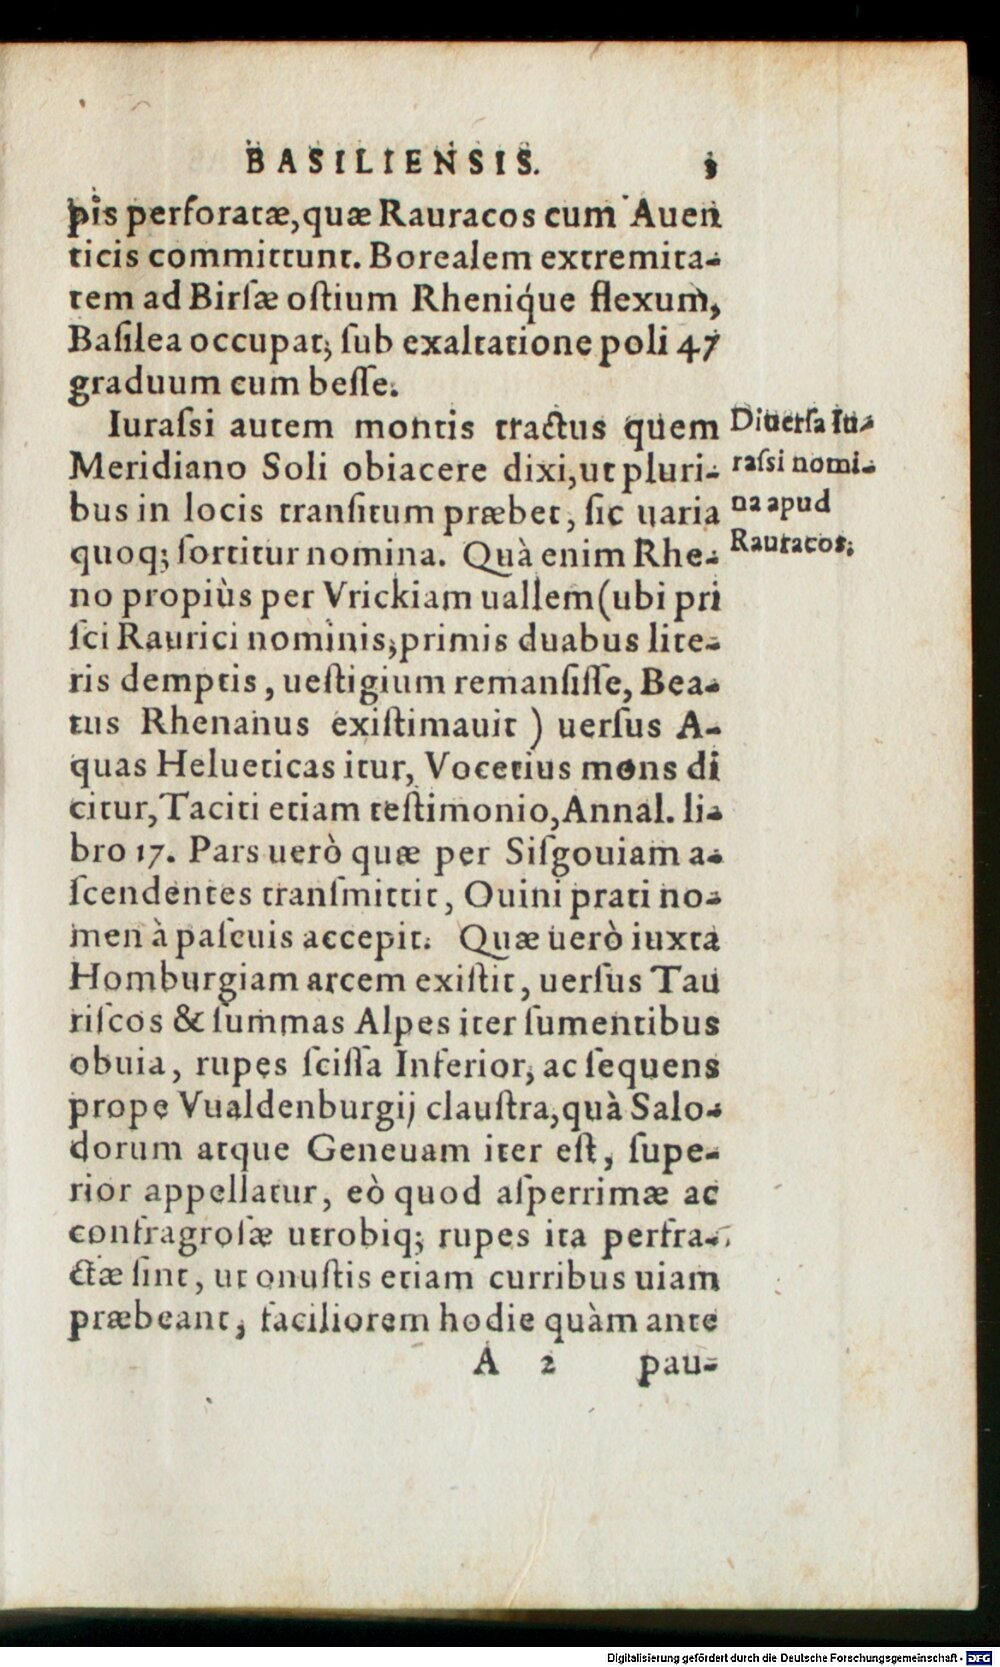 BASILIENSIS. 3
pis perforatæ, quæ Rauracos cum Auen
ticis committunt. Borealem extremita-
tem ad Birſæ oſtium Rheniq́ue flexum,
Baſilea occupat; ſub exaltatione poli 47
graduum cum beſſe.
Iuraſsi autem montis tractus quem
Meridiano Soli obiacere dixi, ut pluri-
bus in locis tranſitum præbet, ſic uaria
quoq; ſortitur nomina. Quà enim Rhe-
no propiùs per Vrickiam uallem (ubi pri
ſci Raurici nominis, primis duabus lite-
ris demptis, ueſtigium remanſiſſe, Bea-
tus Rhenanus exiſtimauit) uerſus A-
quas Helueticas itur, Vocetius mons di
citur, Taciti etiam teſtimonio, Annal. li-
bro 17. Pars uerò quæ per Siſgouiam a-
ſcendentes tranſmittit, Ouini prati no-
men à paſcuis accepit. Quæ uerò iuxta
Homburgiam arcem exiſtit, uerſus Tau
riſcos & ſummas Alpes iter ſumentibus
obuia, rupes ſciſſa Inferior, ac ſequens
prope Vualdenburgij clauſtra, quà Salo-
dorum atque Geneuam iter eſt, ſupe-
rior appellatur, eò quod aſperrimæ ac
confragroſæ utrobiq; rupes ita perfra-
ctæ ſint, ut onuſtis etiam curribus uiam
præbeant, faciliorem hodie quàm ante
A 2 pau-
Diuerſa Iu-
raſsi nomi-
na apud
Rauracos.
Digitalisierung gefördert durch die Deutsche Forschungsgemeinschaft - DFG